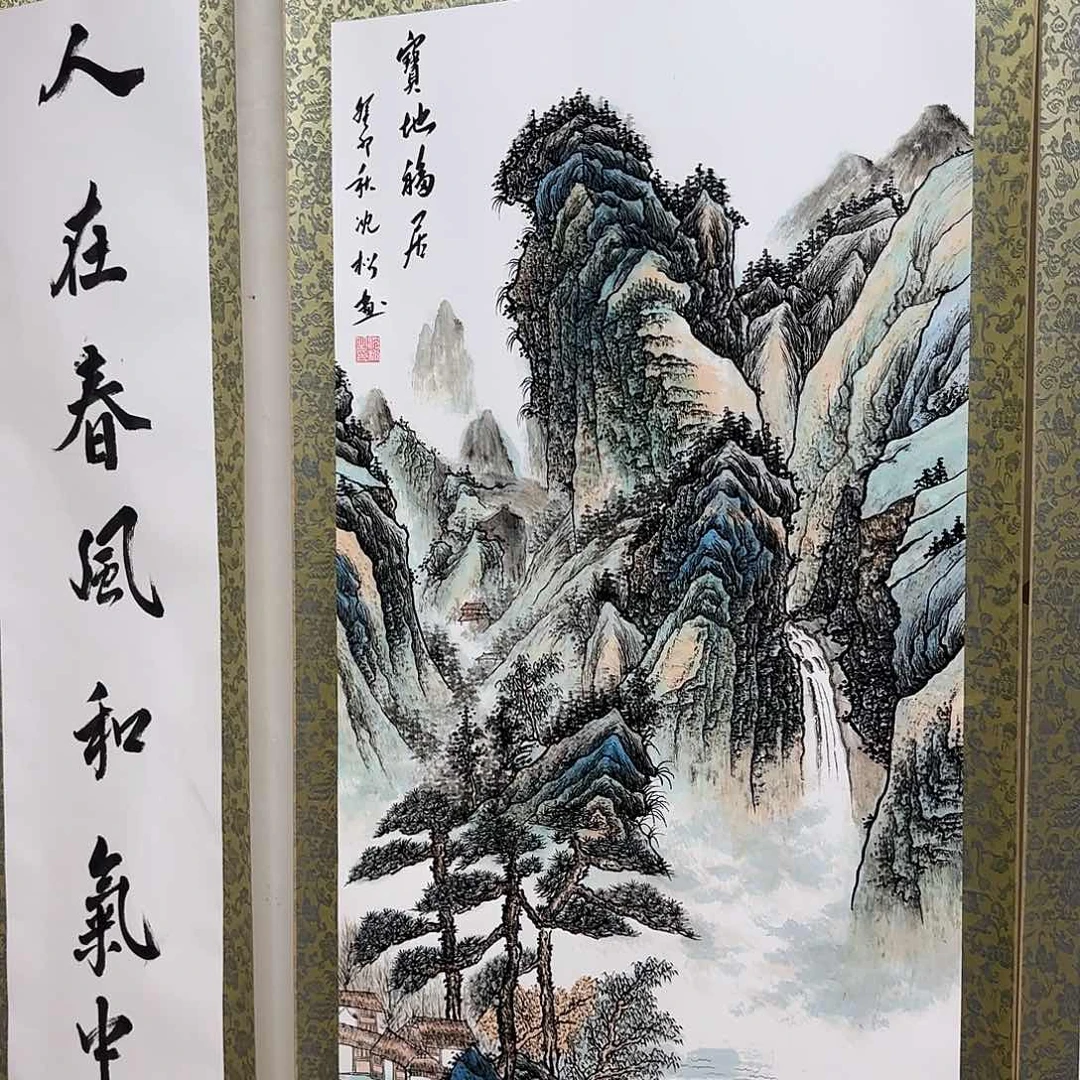 寶地福居
癸卯秋沈松畫
人在春風和氣中